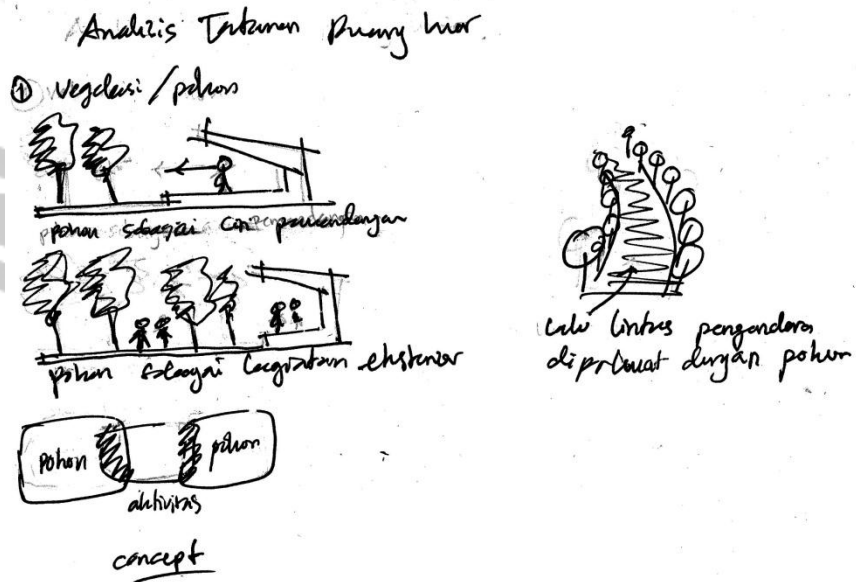 Analisis Tatanan Ruang luar
① vegetasi / pohon
pohon sebagai ciri pemandangan
pohon sebagai kegiatan eksterior
pohon
pohon
aktivitas
concept
lalu lintas pengendara
diperkuat dengan pohon